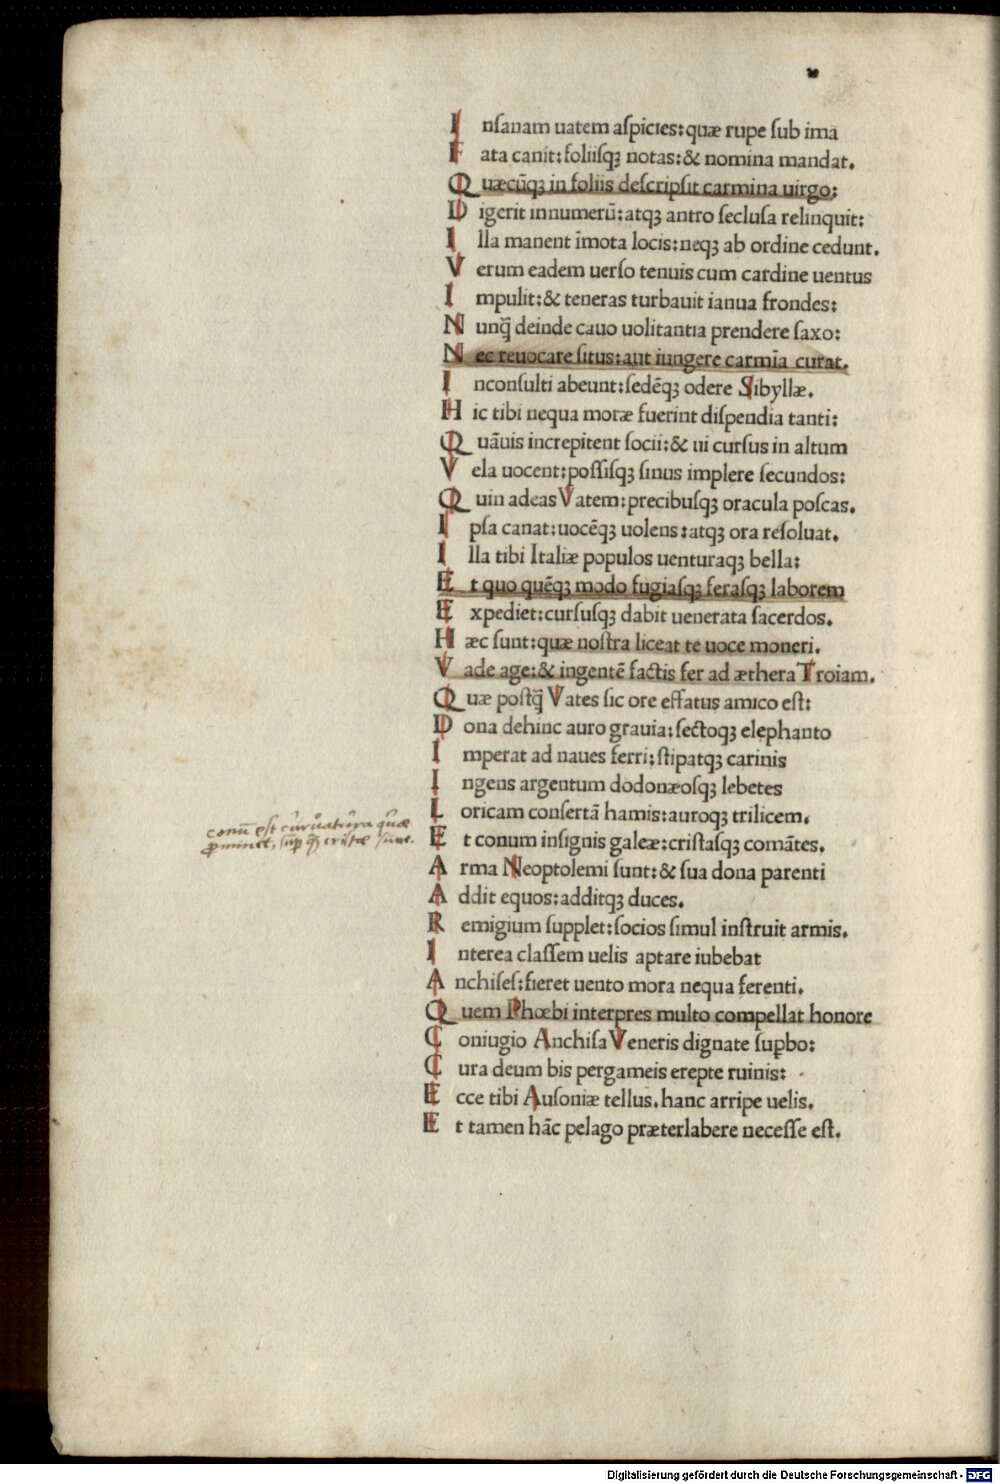 Inſanam uatem aſpicies: quæ rupe ſub ima
Fata canit: foliiſqꝫ notas: & nomina mandat.
Quæcūqꝫ in foliis deſcripſit carmina uirgo:
Digerit in numerū: atqꝫ antro ſecluſa relinquit:
Illa manent īmota locis: neqꝫ ab ordine cedunt.
Verum eadem uerſo tenuis cum cardine uentus
Impulit: & teneras turbauit ianua frondes:
Nunq̄ deinde cauo uolitantia prendere ſaxo:
Nec reuocare ſitus: aut iungere carmīa curat.
Inconſulti abeunt: ſedēqꝫ odere Sibyllæ.
Hic tibi nequa moræ fuerint diſpendia tanti:
Quāuis increpitent ſocii: & ui curſus in altum
Vela uocent: poſſiſqꝫ ſinus implere ſecundos:
Quin adeas Vatem: precibuſqꝫ oracula poſcas.
Ipſa canat: uocēqꝫ uolens: atqꝫ ora reſoluat.
Illa tibi Italiæ populos uenturaqꝫ bella:
Et quo quēqꝫ modo fugiaſqꝫ feraſqꝫ laborem
Expediet: curſuſqꝫ dabit uenerata ſacerdos.
Hæc ſunt: quæ noſtra liceat te uoce moneri.
Vade age: & ingentē factis fer ad æthera Troiam.
Quæ poſtq̄ Vates ſic ore effatus amico eſt:
Dona dehinc auro grauia: ſectoqꝫ elephanto
Imperat ad naues ferri: ſtipatqꝫ carinis
Ingens argentum dodonæoſqꝫ lebetes
Loricam conſertā hamis: auroqꝫ trilicem.
conū est curuatura quæ
ꝓminet, sup̄ q̄ cristæ sunt.
Et conum inſignis galeæ: criſtaſqꝫ comātes.
Arma Neoptolemi ſunt: & ſua dona parenti
Addit equos: additqꝫ duces.
Remigium ſupplet: ſocios ſimul inſtruit armis.
Interea claſſem uelis aptare iubebat
Anchiſeſ: fieret uento mora nequa ferenti.
Quem Phœbi interpres multo compellat honore
Coniugio Anchiſa Veneris dignate ſuꝑbo:
Cura deum bis pergameis erepte ruinis:
Ecce tibi Auſoniæ tellus. hanc arripe uelis.
Et tamen hāc pelago præterlabere neceſſe eſt.
Digitalisierung gefördert durch die Deutsche Forschungsgemeinschaft - DFG